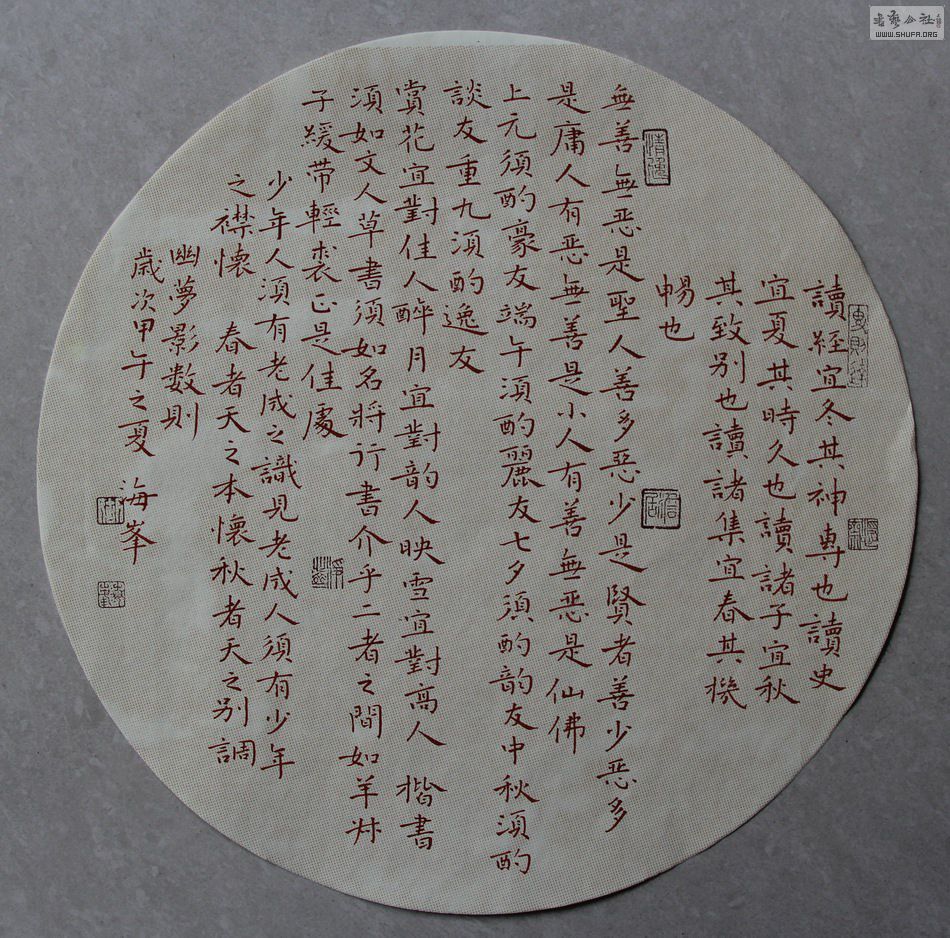 讀經宜冬其神專也讀史
宜夏其時久也讀諸子宜秋
其致别也讀諸集宜春其機
暢也
無善無恶是聖人善多惡少是賢者善少恶多
是庸人有恶無善是小人有善無恶是仙佛
上元須酌豪友端午須酌麗友七夕須酌韵友中秋須酌
談友重九須酌逸友
賞花宜對佳人醉月宜對韵人映雪宜對高人 楷書
須如文人草書須如名將行書介乎二者之間如羊叔
子緩带輕裘正是佳處
少年人須有老成之識見老成人須有少年
之襟懷 春者天之本懷秋者天之别調
幽夢影數则
歲次甲午之夏 海峯
WWW.SHUFA.ORG